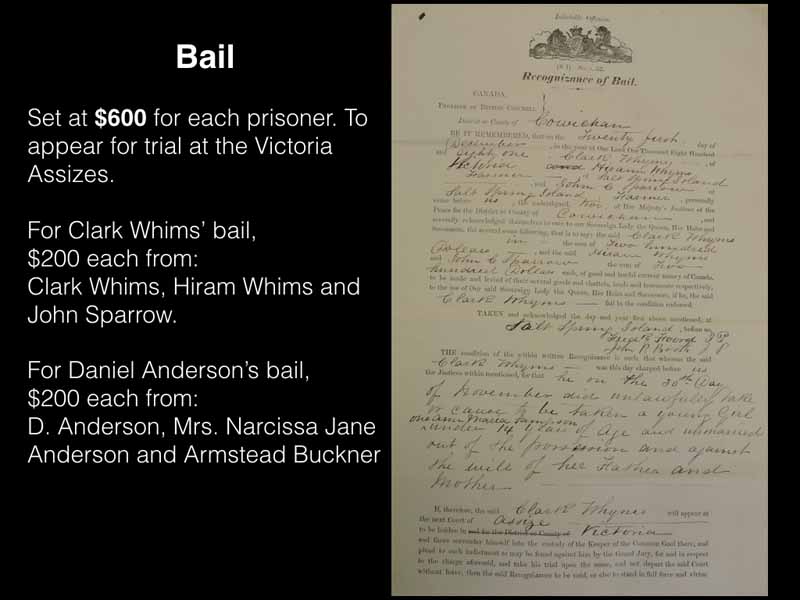 Bail
Set at $600 for each prisoner. To
appear for trial at the Victoria
Assizes.
For Clark Whims’ bail,
$200 each from:
Clark Whims, Hiram Whims and
John Sparrow.
For Daniel Anderson’s bail,
$200 each from:
D. Anderson, Mrs. Narcissa Jane
Anderson and Armstead Buckner
Indictable Offences.
Recognizance of Bail.
CANADA,
PROVINCE OF BRITISH COLUMBIA
District or County of Cowichan
BE IT REMEMBERED, that on the Twenty first day of
December in the year of Our Lord One Thousand Eight Hundred
and eighty one Clark Whyms of
Hiram Whyms
Farmer Salt Spring Island
and John C Sparrow of
Salt Spring Island Farmer, personally
came before us, the undersigned, two of Her Majesty's Justices of the
Peace for the District or County of Cowichan and
severally acknowledged themselves to owe to our Sovereign Lady the Queen, Her Heirs and
Successors, the several sums following, that is to say: the said Clark Whyms
in the sum of Two hundred
Dollars and the said Hiram Whyms
and John C Sparrow the sum of Two
hundred Dollars each, of good and lawful current money of Canada,
to be made and levied of their several goods and chattels, lands and tenements respectively,
to the use of Our said Sovereign Lady the Queen, Her Heirs and Successors, if he, the said
Clark Whyms fail in the condition endorsed.
TAKEN and acknowledged the day and year first above mentioned, at
Salt Spring Island, before us,
JP
John P Booth J P
THE condition of the within written Recognizance is such that whereas the said
Clark Whyms was this day charged before us
the Justices within mentioned, for that he on the 30th Day
of November did unlawfully take
or cause to be taken a young Girl
one Ann Maria Sampson
under 14 years of Age and unmarried
out of the possession and against
the will of her Father and
Mother
If, therefore, the said Clark Whyms will appear at
the next Court of Assize
to be holden in and for the District or County of Victoria
and there surrender himself into the custody of the Keeper of the Common Gaol there, and
plead to such indictment as may be found against him by the Grand Jury, for and in respect
to the charge aforesaid, and take his trial upon the same, and not depart the said Court
without leave, then the said Recognizance to be void, or else to stand in full force and virtue